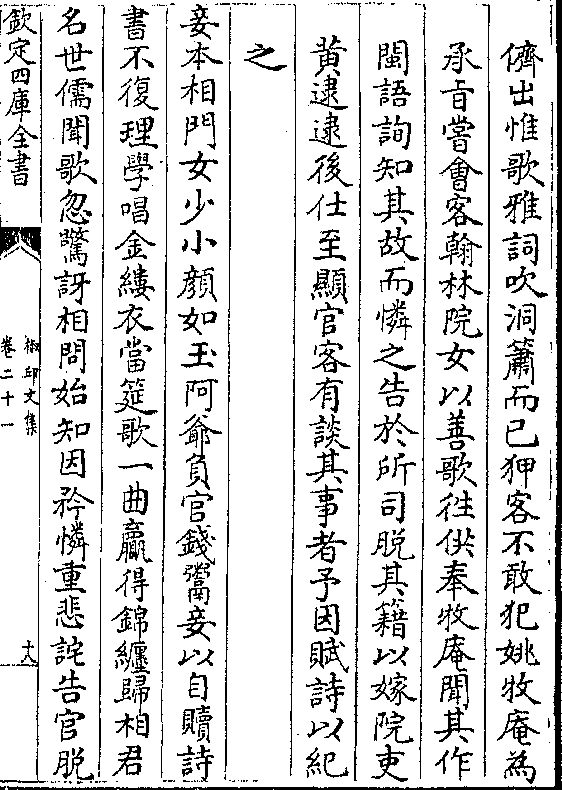 儕出惟歌雅詞吹洞簫而已狎客不敢犯姚牧庵為
承旨嘗會客翰林院女以善歌徃供奉牧庵聞其作
閩語詢知其故而憐之告於所司脱其籍以嫁院吏
黄逮逮後仕至顯官客有談其事者予因賦詩以紀
之
妾本相門女少小顔如玉阿爺負官錢鬻妾以自贖詩
書不復理學唱金縷衣當筵歌一曲贏得錦纏歸相君
名世儒聞歌忽驚訝相問始知因矜憐重悲詫告官脱
欽定四庫全書
椒邱文集
卷二十一
十八